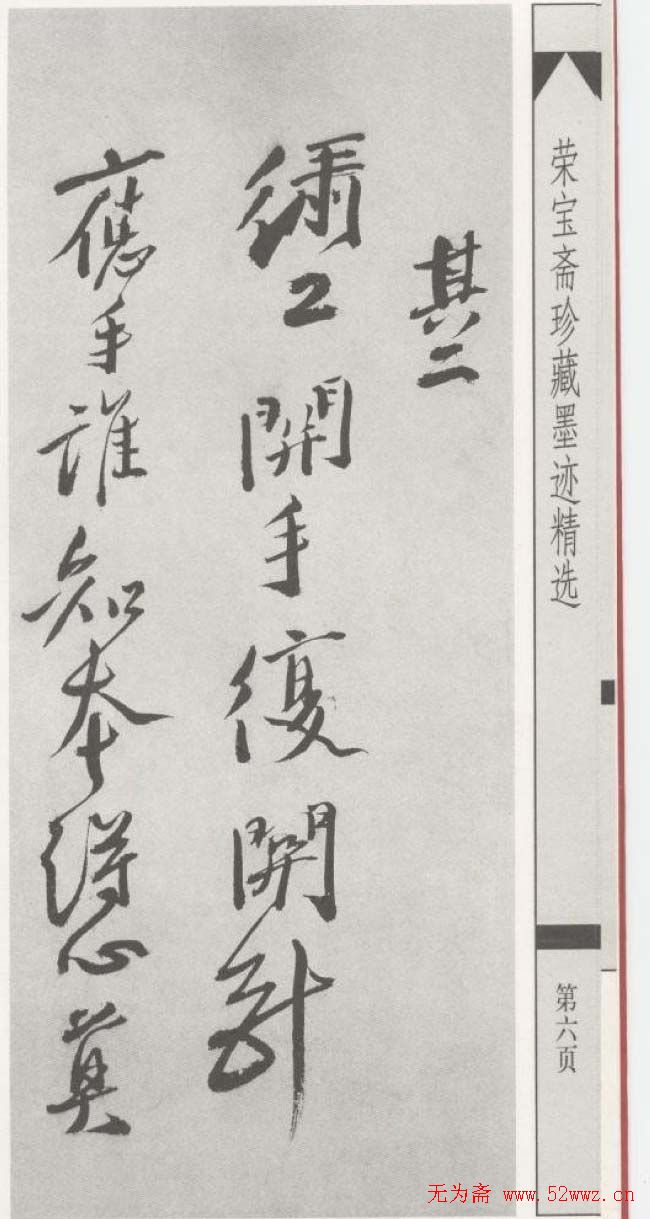 荣宝斋珍藏墨迹精选
第六页
其二
繡工開手復開針
應手誰知本得心莫
无为斋 www.52wwz.cn